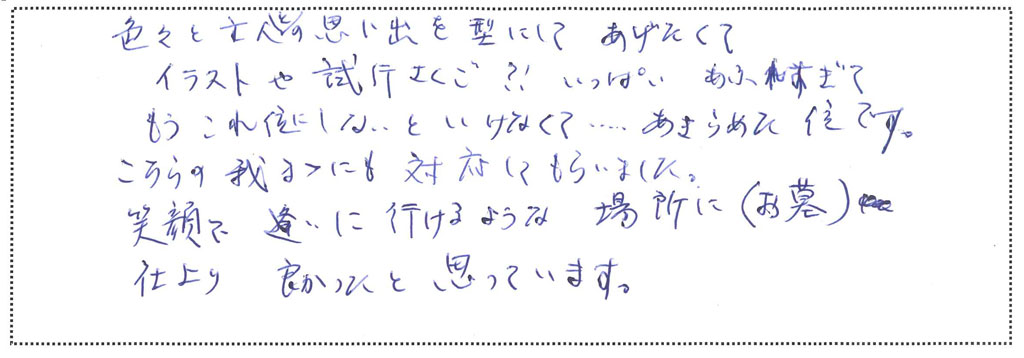 色々と主人との思い出を型にして あげたくて
イラストや 試行さくご?! いっぱい あふれすぎて
もう これ位にしないと いけなくて‥‥‥ あきらめた 位です。
こちらの 我まゝにも 対応して もらいました。
笑顔で 逢いに 行けるような 場所に (お墓)
仕上り 良かったと 思っています。